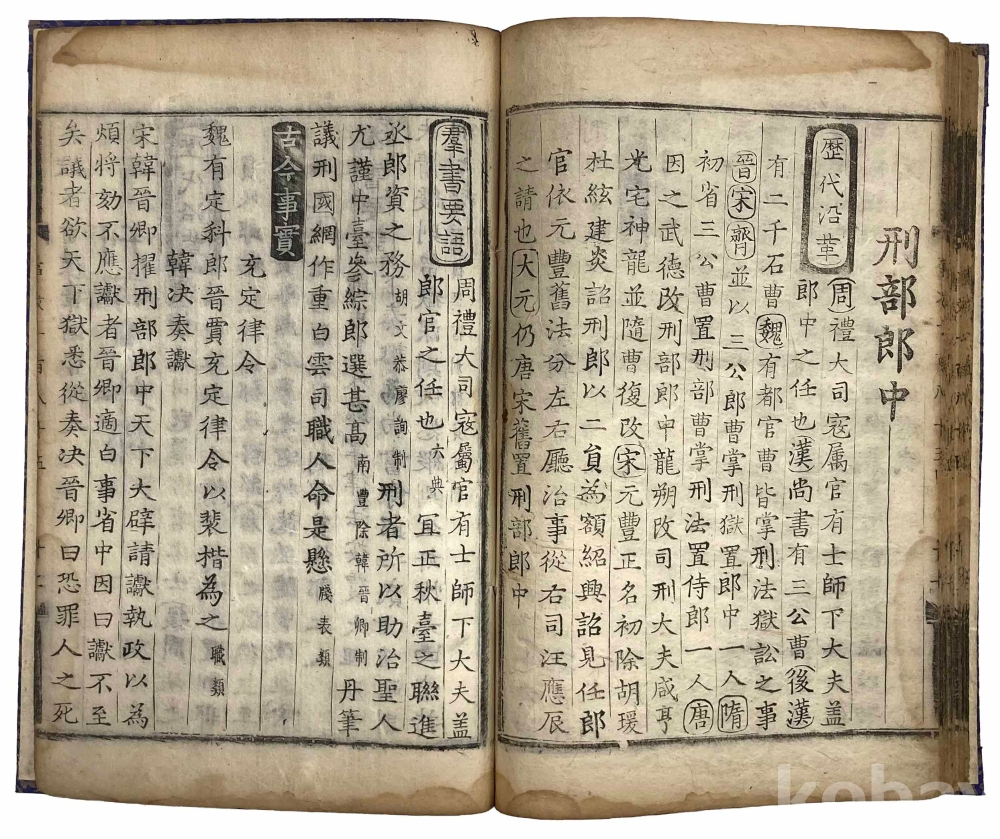 刑部郎中
歷代沿革
周禮大司寇属官有士師下大夫盖
郎中之任也漢尚書有三公曹後漢
有二千石曹魏有都官曹皆掌刑法獄訟之事
晉宋齊並以三公郎曹掌刑獄置郎中一人隋
初省三公曹置刑部曹掌刑法置侍郎一人唐
因之武德改刑部郎中龍朔改司刑大夫咸亨
光宅神龍並隨曹復改宋元豐正名初除胡瑗
杜紘建炎詔刑郎以二員為額紹興詔見任郎
官依元豐舊法分左右廳治事從右司汪應辰
之請也大元仍唐宋舊置刑部郎中
羣書要語
周禮大司寇屬官有士師下大夫盖
郎官之任也六典冝正秋臺之聯進
丞郎資之務胡文恭廖詢制刑者所以助治聖人
尤謹中臺參綜郎選甚髙南豐除韓晉卿制丹筆
議刑國網作重白雲司職人命是懸牋表類
古今事實
充定律令
魏有定科郎晉賈充定律令以裴楷為之職類
韓決奏讞
宋韓晉卿擢刑部郎中天下大辟請讞執政以為
煩將劾不應讞者晉卿適白事省中因曰讞不至
矣議者欲天下獄悉從奏决晉卿曰恐罪人之死
kobay